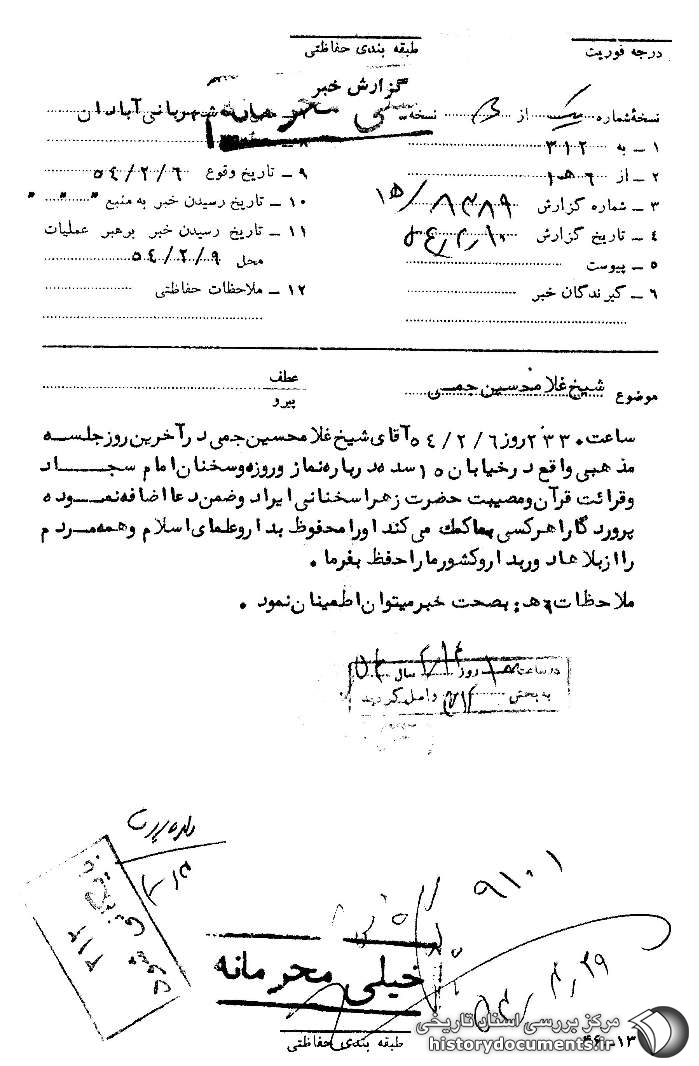 درجه فوریت
طبقه بندی حفاظتی
گزارش خبر
خیلی محرمانه
نسخهٔ شماره یک از نسخه
شهربانی آبادان
۱ ـ به ۳۱۲
۲ ـ از ۶ ه ۱
۳ ـ شماره گزارش ۸۳۸۹ / ه ۱
۴ ـ تاریخ گزارش
۵ ـ پیوست
۶ ـ گیرندگان خبر
۹ ـ تاریخ وقوع ۶ / ۲ / ۵۴
۱۰ ـ تاریخ رسیدن خبر به منبع " " "
۱۱ ـ تاریخ رسیدن خبر برهبر عملیات
محل ۹ / ۲ / ۵۴
۱۲ ـ ملاحظات حفاظتی
موضوع شیخ غلامحسین جمی
عطف
پیرو
ساعت ۲۳۳۰ روز ۶ / ۲ / ۵۴ آقای شیخ غلامحسین جمی در آخرین روز جلسه
مذهبی واقع در خیابان ۱۵ سده درباره نماز و روزه و سخنان امام سجاد
و قرائت قرآن و مصیبت حضرت زهرا سخنانی ایراد و ضمن دعا اضافه نموده
پروردگارا هرکسی بما کمک می کند او را محفوظ بدار و علمای اسلام و همه مردم
را از بلاها دور بدار و کشور ما را حفظ بفرما .
ملاحظات ۶ ه : بصحت خبر میتوان اطمینان نمود .
در ساعت روز سال
به بخش ۳۱۲ واصل گردید
بایگانی شود
۳۱۲
۹۱۰۱
خیلی محرمانه
طبقه بندی حفاظتی
مرکز بررسی اسناد تاریخی
historydocuments.ir